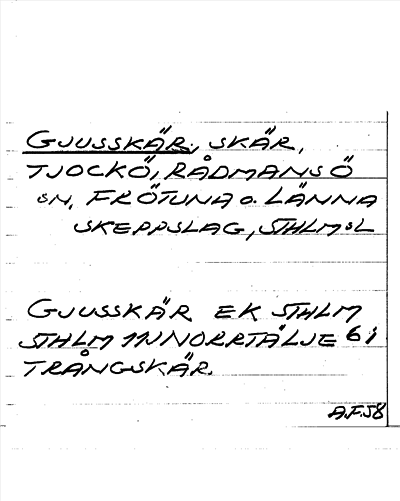 GJUSSKÄR, SKÄR,
TJOCKÖ, RÅDMANSÖ
SN, FRÖTUNA O. LÄNNA
SKEPPSLAG, STHLMSL
GJUSSKÄR EK STHLM
STHLM 11 NNORRTÄLJE 6 i
TRÅNGSKÄR.
A.F.58